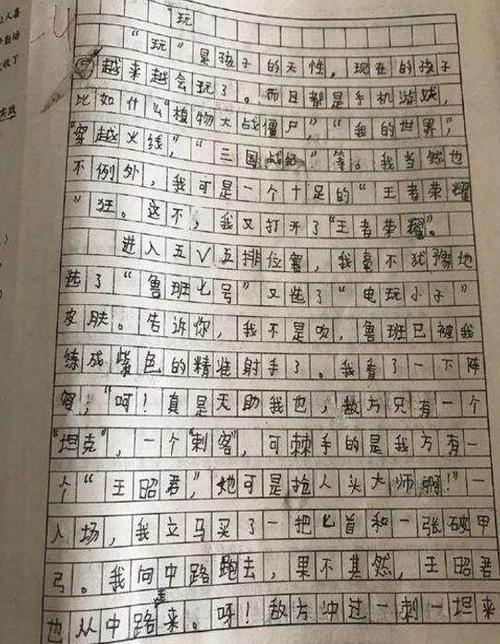 玩
“玩”是孩子的天性，现在的孩子
越来越会玩了。而且都是手机游戏，
比如什么“植物大战僵尸”，“我的世界”，
“穿越火线”，“三国战纪”等。我当然也
不例外，我可是一个十足的“王者荣耀
”狂。这不，我又打开了“王者荣耀”。
进入五V五排位赛，我毫不犹豫地
选了“鲁班七号”又选了“电玩小子”
皮肤。告诉你，我不是吹，鲁班已被我
练成紫色的精准射手了。我看了一下阵
容，“呵！真是天助我也，敌方只有一个
“坦克”，一个“刺客”，可棘手的是我方有一
个“王昭君”，她可是抢人头大师啊！”一
入场，我立马买了一把匕首和一张破甲
弓。我向中路跑去，果不其然，王昭君
也从中路走来。呀！敌方冲过一刺一坦来